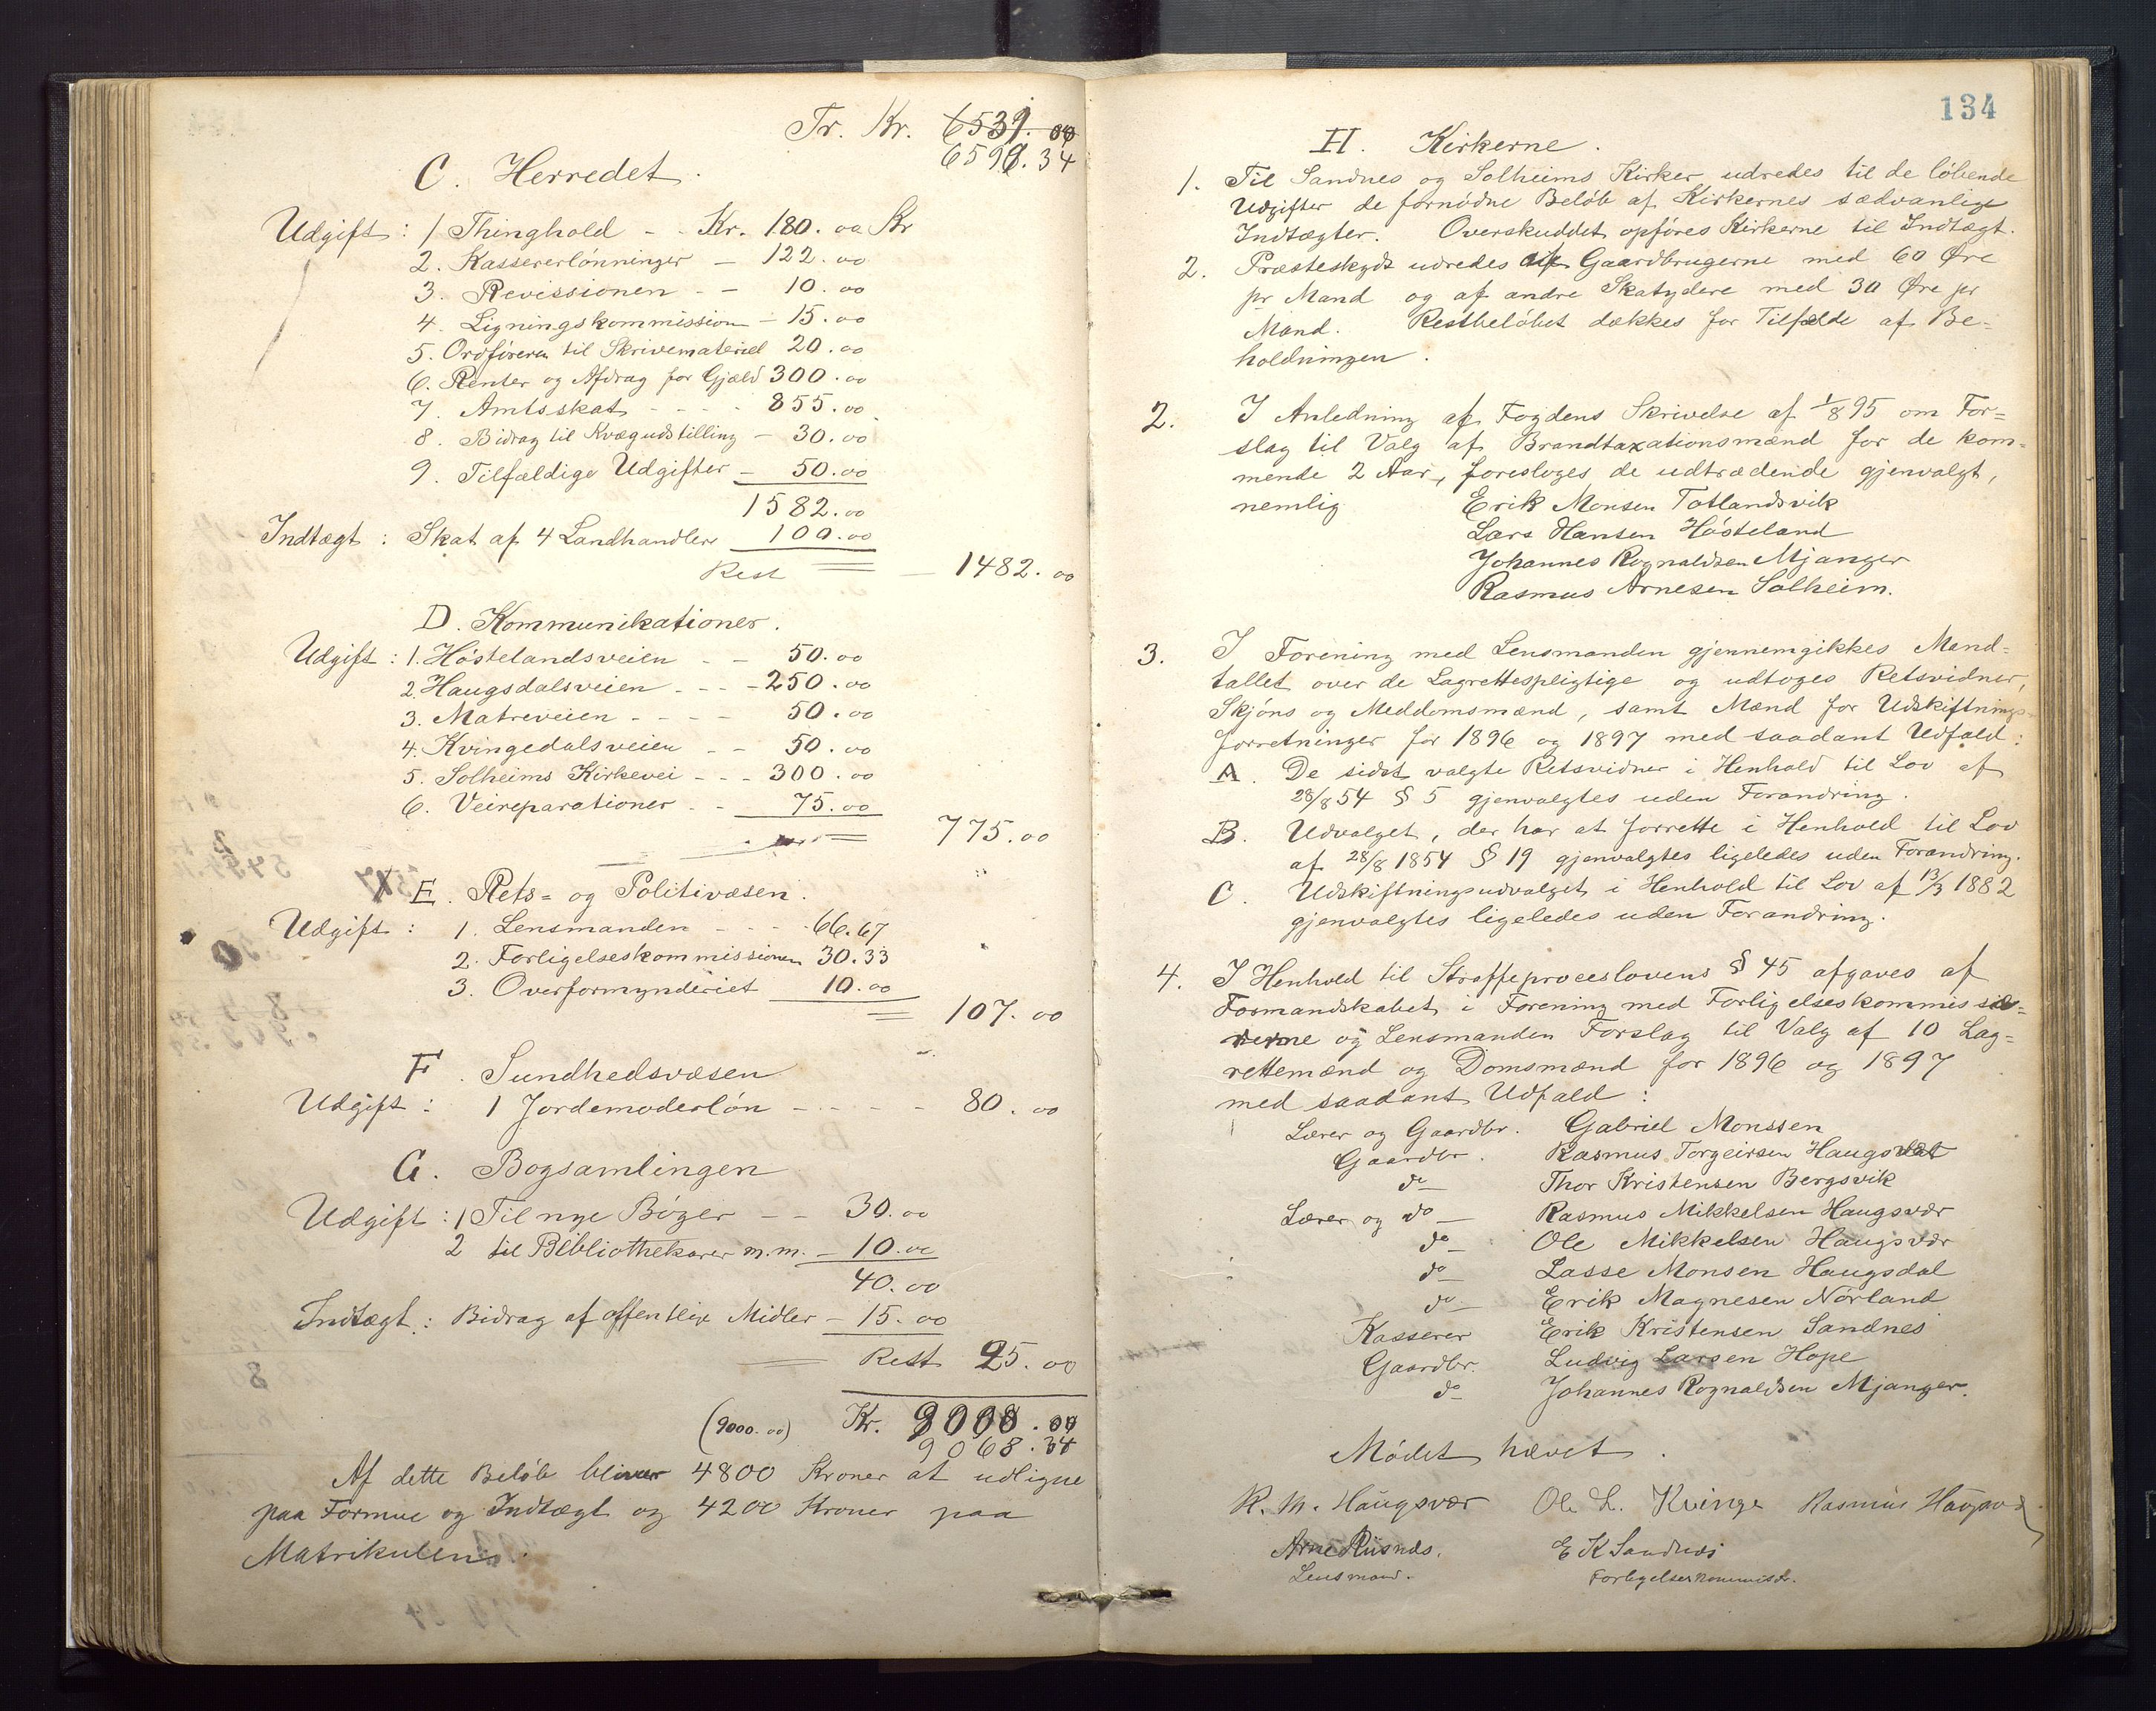 Tr. Kr. 6539.00
6599.34
C. Herredet.
Udgift: 1 Thinghold - - Kr. 180.00 Kr
2. Kassererlønninger - 122.00
3. Revissionen - - 10.00
4. Ligningskommission - 15.00
5. Ordføreren til Skrivemateriel 20.00
6. Renter og Afdrag for Gjæld 300.00
7. Amtsskat - - - 855.00
8. Bidrag til Kvægudstilling - 30.00
9. Tilfældige Udgifter - 50.00
1582.00
Indtægt: Skat af 4 Landhandlere 100.00
Rest - 1482.00
D. Kommunikationer.
Udgift: 1. Høstelandsveien - - 50.00
2. Haugsdalsveien - - - 250.00
3. Matreveien - - - - 50.00
4. Kvingedalsveien - - 50.00
5. Solheims Kirkevei - - - 300.00
6. Veireparationer - - 75.00
775.00
E. Rets= og Politivæsen.
Udgift: 1. Lensmanden - - - 66.67
2. Forligelseskommissionen 30.33
3. Overformynderiet 10.00
107.00
F. Sundhedsvæsen
Udgift: 1 Jordemoderløn - - - - 80.00
G. Bogsamlingen
Udgift: 1 Til nye Bøger - - 30.00
2 til Bibliothekarer m.m. - 10.00
40.00
Indtægt: Bidrag af offentlige Midler - 15.00
Rest 25.00
(9000.00) Kr. 9008.00
9068.34
Af dette Beløb bliver 4800 Kroner at udligne
paa Formue og Indtægt og 4200 Kroner paa
Matrikulen.
134
H. Kirkerne.
1. Til Sandnes og Solheims Kirker udredes til de løbende
Udgifter de fornødne Beløb af Kirkernes sædvanlige
Indtægter. Overskuddet opføres Kirkerne til Indtægt.
2. Præsteskyds udredes af Gaardbrugerne med 60 Øre
pr Mand og af andre Skatydere med 30 Øre pr
Mand. Restbeløbet dækkes for Tilfælde af Be=
holdningen.
2. I Anledning af Fogdens Skrivelse af 1/8 95 om For=
slag til Valg af Brandtaxationsmænd for de kom=
mende 2 Aar, foresloges de udtrædende gjenvalgt,
nemlig Erik Monsen Totlandsvik
Lars Hansen Høsteland
Johannes Rognaldsen Mjanger
Rasmus Arnesen Solheim.
3. I Forening med Lensmanden gjennemgikkes Mand=
tallet over de Lagrettespligtige og udtoges Retsvidner,
Skjøns og Meddomsmænd, samt Mænd for Udskiftnings=
forretninger for 1896 og 1897 med saadant Udfald:
A. De sidst valgte Retsvidner i Henhold til Lov af
28/8 54 § 5 gjenvalgtes uden Forandring.
B. Udvalget, der har at forrette i Henhold til Lov
af 28/8 1854 § 19 gjenvalgtes ligeledes uden Forandring.
C. Udskiftningsudvalget i Henhold til Lov af 13/3 1882
gjenvalgtes ligeledes uden Forandring.
4. I Henhold til Straffeproceslovens § 45 afgaves af
Formandskabet i Forening med Forligelseskommissæ=
rerne og Lensmanden Forslag til Valg af 10 Lag=
rettemænd og Domsmænd for 1896 og 1897
med saadant Udfald:
Lærer og Gaardbr. Gabriel Monssen
Gaardbr. Rasmus Torgeirsen Haugsvær
do Thor Kristensen Bergsvik
Lærer og do Rasmus Mikkelsen Haugsvær
do Ole Mikkelsen Haugsvær
do Lasse Monsen Haugsdal
do Erik Magnesen Nørland
Kasserer Erik Kristensen Sandnes
Gaardbr. Ludvig Larsen Hope
do Johannes Rognaldsen Mjanger.
Mødet hævet.
R. M. Haugsvær Ole L. Kvinge Rasmus Haugsvær
Arne Risnæs. E K Sandnes
Lensmand. Forligelseskommisær.